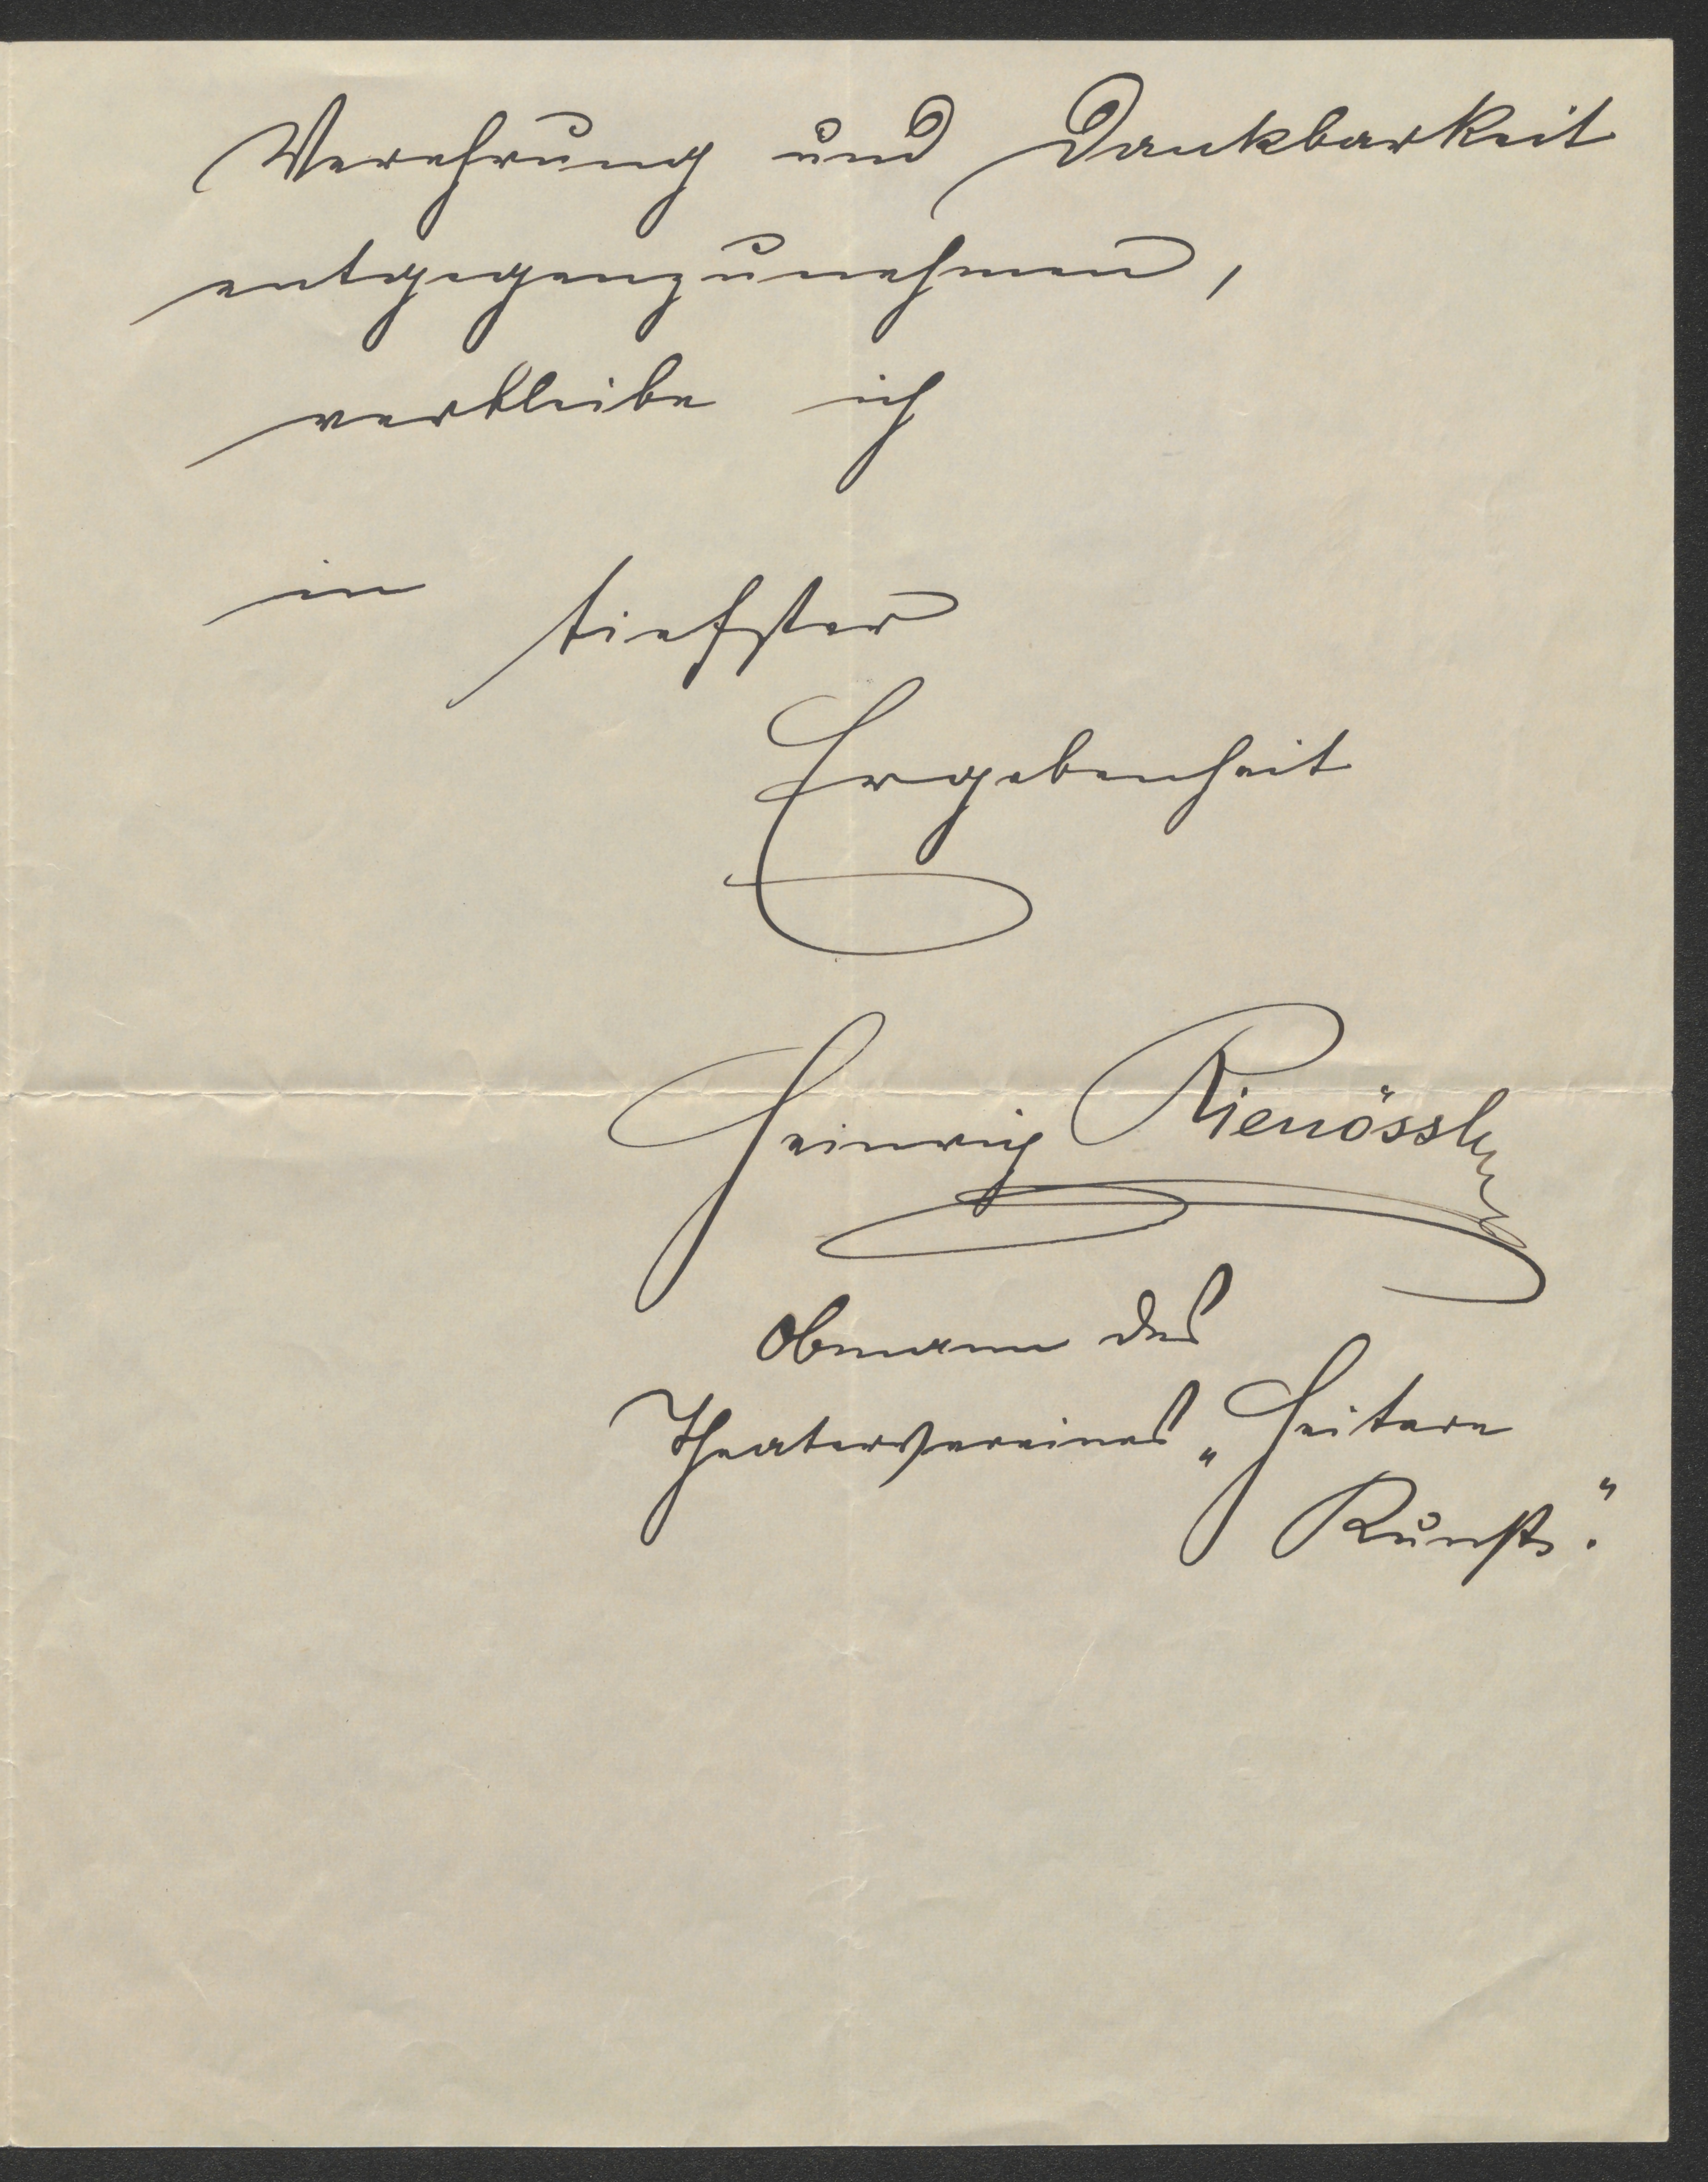 Verehrung und Dankbarkeit
entgegenzunehmen,
verbleibe ich
in tiefster
Ergebenheit
Heinrich Rienössl
Obmann des
Theatervereines „Heitere
Kunst“.